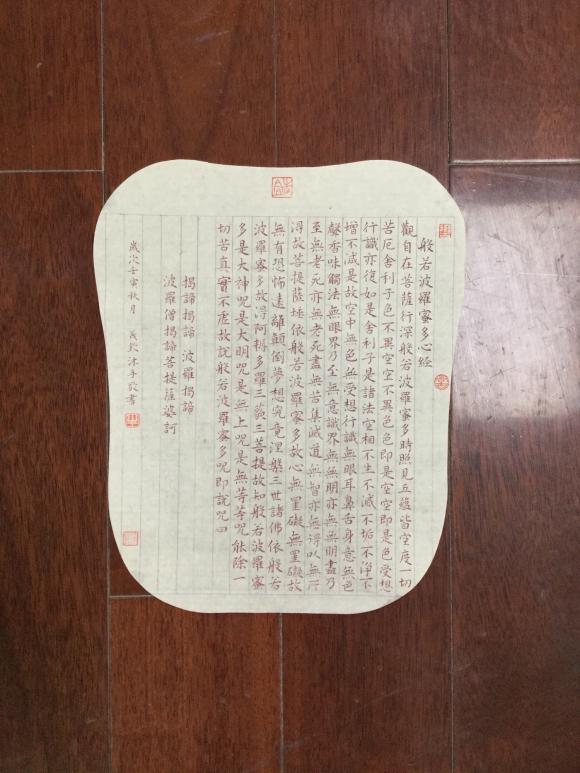 般若波羅蜜多心經
觀自在菩薩行深般若波羅蜜多時照見五蘊皆空度一切
苦厄舍利子色不異空空不異色色即是空空即是色受想
行識亦復如是舍利子是諸法空相不生不滅不垢不淨不
增不減是故空中無色無受想行識無眼耳鼻舌身意無色
聲香味觸法無眼界乃至無意識界無無明亦無無明盡乃
至無老死亦無老死盡無苦集滅道無智亦無得以無所
得故菩提薩埵依般若波羅蜜多故心無罣礙無罣礙故
無有恐怖遠離顛倒夢想究竟涅槃三世諸佛依般若
波羅蜜多故得阿耨多羅三藐三菩提故知般若波羅蜜
多是大神咒是大明咒是無上咒是無等等咒能除一
切苦真實不虛故說般若波羅蜜多咒即說咒曰
揭諦揭諦 波羅揭諦
波羅僧揭諦菩提薩婆訶
歲次壬寅秋月 沐手敬書